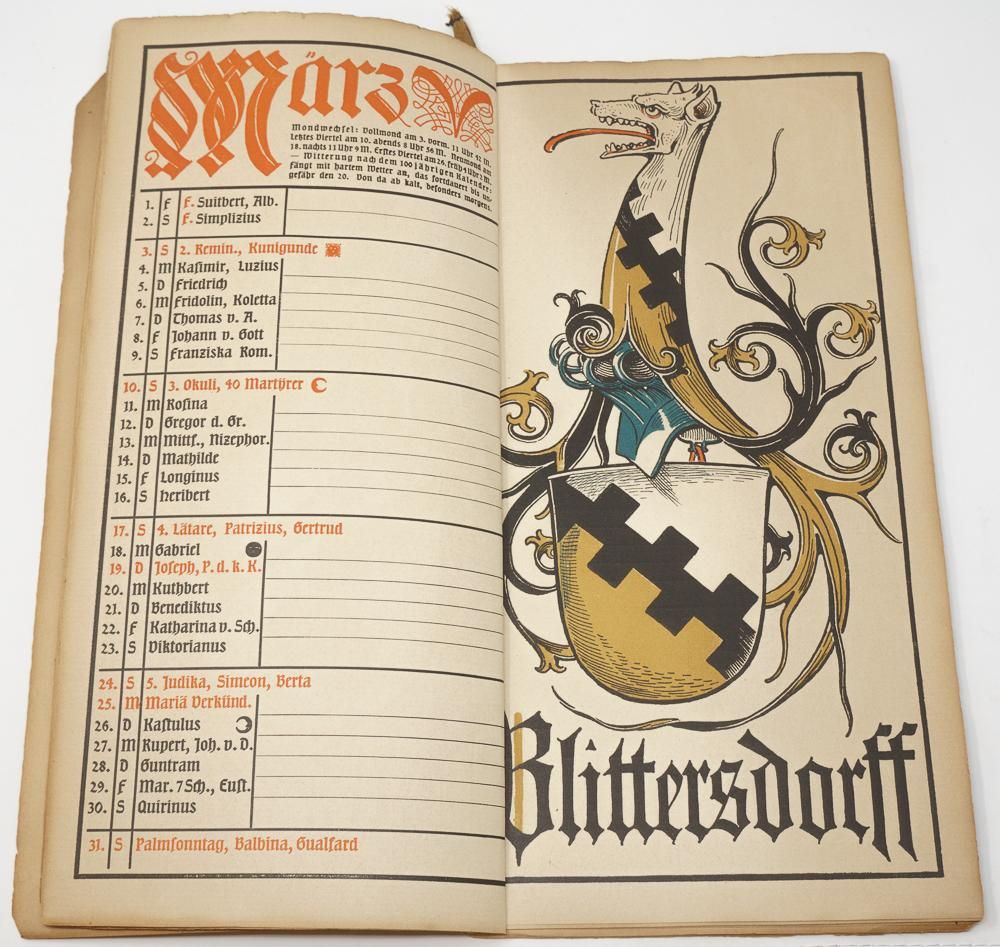 März
Mondwechsel: Vollmond am 3. vorm. 11 Uhr 52 M.
Letztes Viertel am 10. abends 8 Uhr 56 M. Neumond am
18. nachts 11 Uhr 9 M. Erstes Viertel am 26. früh 4 Uhr 2 M.
— Witterung nach dem 100jährigen Kalender:
fängt mit hartem Wetter an, das fortdauert bis un-
gefähr den 20. Von da ab kalt, besonders morgens.
1. F F. Suitbert, Alb.
2. S F. Simplizius
3. S 2. Remin., Kunigunde
4. M Kasimir, Luzius
5. D Friedrich
6. M Fridolin, Koletta
7. D Thomas v. A.
8. F Johann v. Gott
9. S Franziska Rom.
10. S 3. Okuli, 40 Martyrer
11. M Rosina
12. D Gregor d. Gr.
13. M Mittf., Nizephor.
14. D Mathilde
15. F Longinus
16. S Heribert
17. S 4. Lätare, Patrizius, Gertrud
18. M Gabriel
19. D Joseph, P. d. k. K.
20. M Kuthbert
21. D Benediktus
22. F Katharina v. Sch.
23. S Viktorianus
24. S 5. Judika, Simeon, Berta
25. M Mariä Verkünd.
26. D Kastulus
27. M Rupert, Joh. v. D.
28. D Guntram
29. F Mar. 7 Sch., Eust.
30. S Quirinus
31. S Palmsonntag, Balbina, Gualfard
Blittersdorff